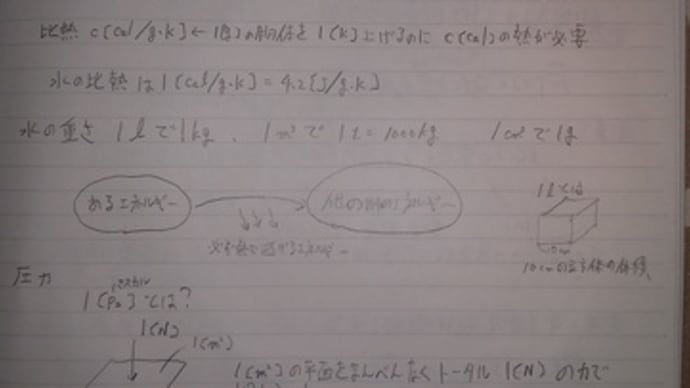 比熱 c[cal/g·k] ← 1[g]の物体を 1[k]上げるのに c[cal]の熱が必要
水の比熱は 1[cal/g·k] = 4.2[J/g·k]
水の重さ 1lで1kg、1m³で 1t = 1000kg 1cm³で1g
あるエネルギー
他のエネルギー
必ず熱で逃げるエネルギー
1lとは
10cm
10cmの立方体の体積
圧力
パスカル
1[Pa]とは?
1[N]
1[m²]
1[m²]の平面をまんべんなくトータル 1[N]の力で